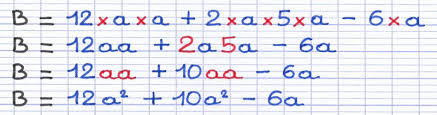 B = 12×a×a + 2×a×5×a - 6×a
B = 12aa + 2a5a - 6a
B = 12aa + 10aa - 6a
B = 12a² + 10a² - 6a